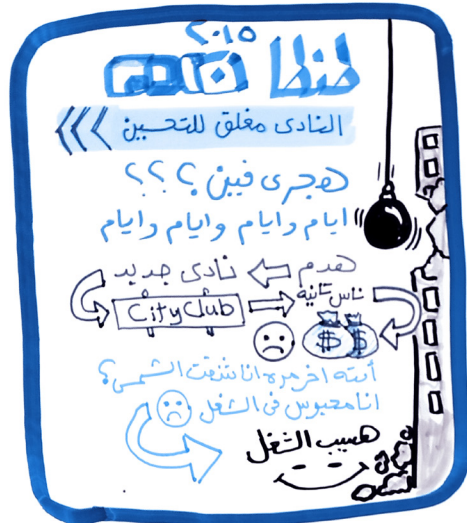 ٢٠١٥
طنطا
النادى مغلق للتحسين
هجرى فين ؟ ؟ ؟
ايام وايام وايام وايام
هدم نادى جديد
City Club ناس تانيه
$ $
أنته اخر مره انا شفت الشمس ؟
انا محبوس فى الشغل
هسيب الشغل